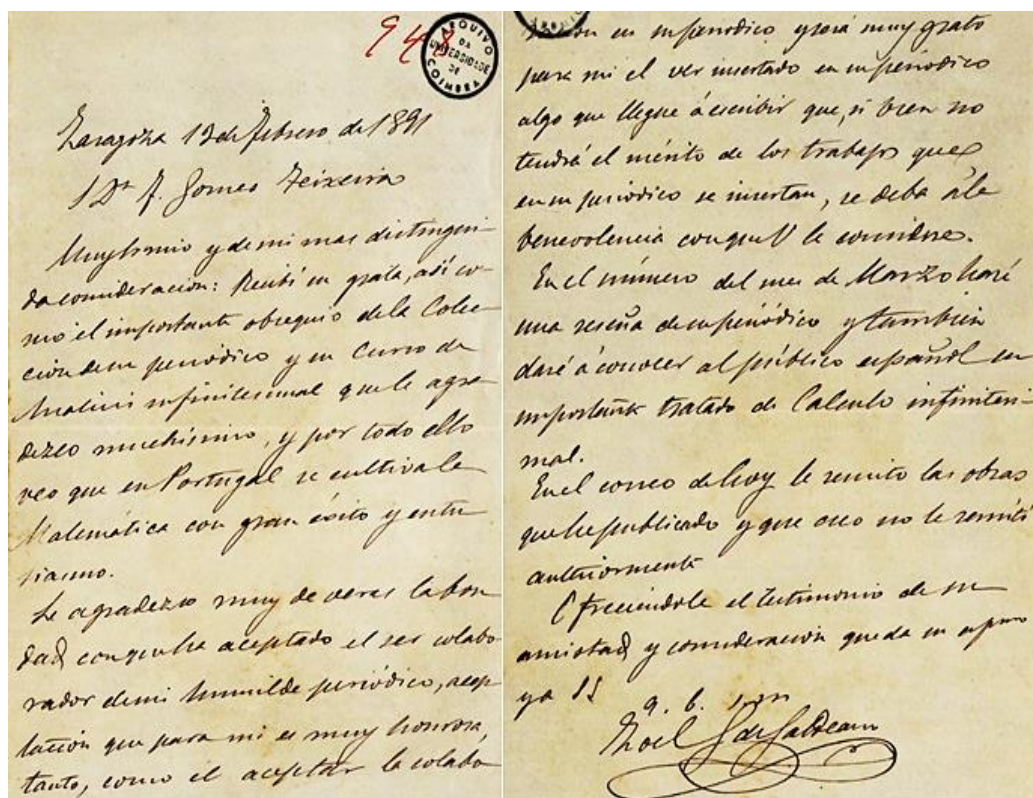 948
ARQUIVO DA UNIVERSIDADE DE COIMBRA
Zaragoza 12 de Febrero de 1891
S Dr F. Gomes Teixeira
Muy Sr mio y de mi mas distingui-
da consideracion: Recibí su grata, así co-
mo el importante obsequio de la Colec-
cion de su periódico y su Curso de
Analisis infinitesimal que le agra-
dezco muchísimo, y por todo ello
veo que en Portugal se cultiva la
Matemática con gran éxito y entu
siasmo.
Le agradezco muy de veras la bon
dad con que ha aceptado el ser colabo
rador de mi humilde periódico, acep
tación que para mi es muy honrosa,
tanto, como el aceptar la colabo
racion en su periodico y será muy grato
para mi el ver insertado en su periódico
algo que llegue á escribir que, si bien no
tendrá el mérito de los trabajos que
en su periódico se insertan, se deba á la
benevolencia con que V le considere.
En el número del mes de Marzo haré
una reseña de su periódico y tambien
daré á conocer al público español su
importante tratado de Calculo infinitesi-
mal.
En el correo de hoy le remito las obras
que he publicado y que creo no le remití
anteriormente
Ofreciendole el testimonio de su
amistad y consideración queda su
ya SS
q. b. s. m
Zoel G de Galdeano